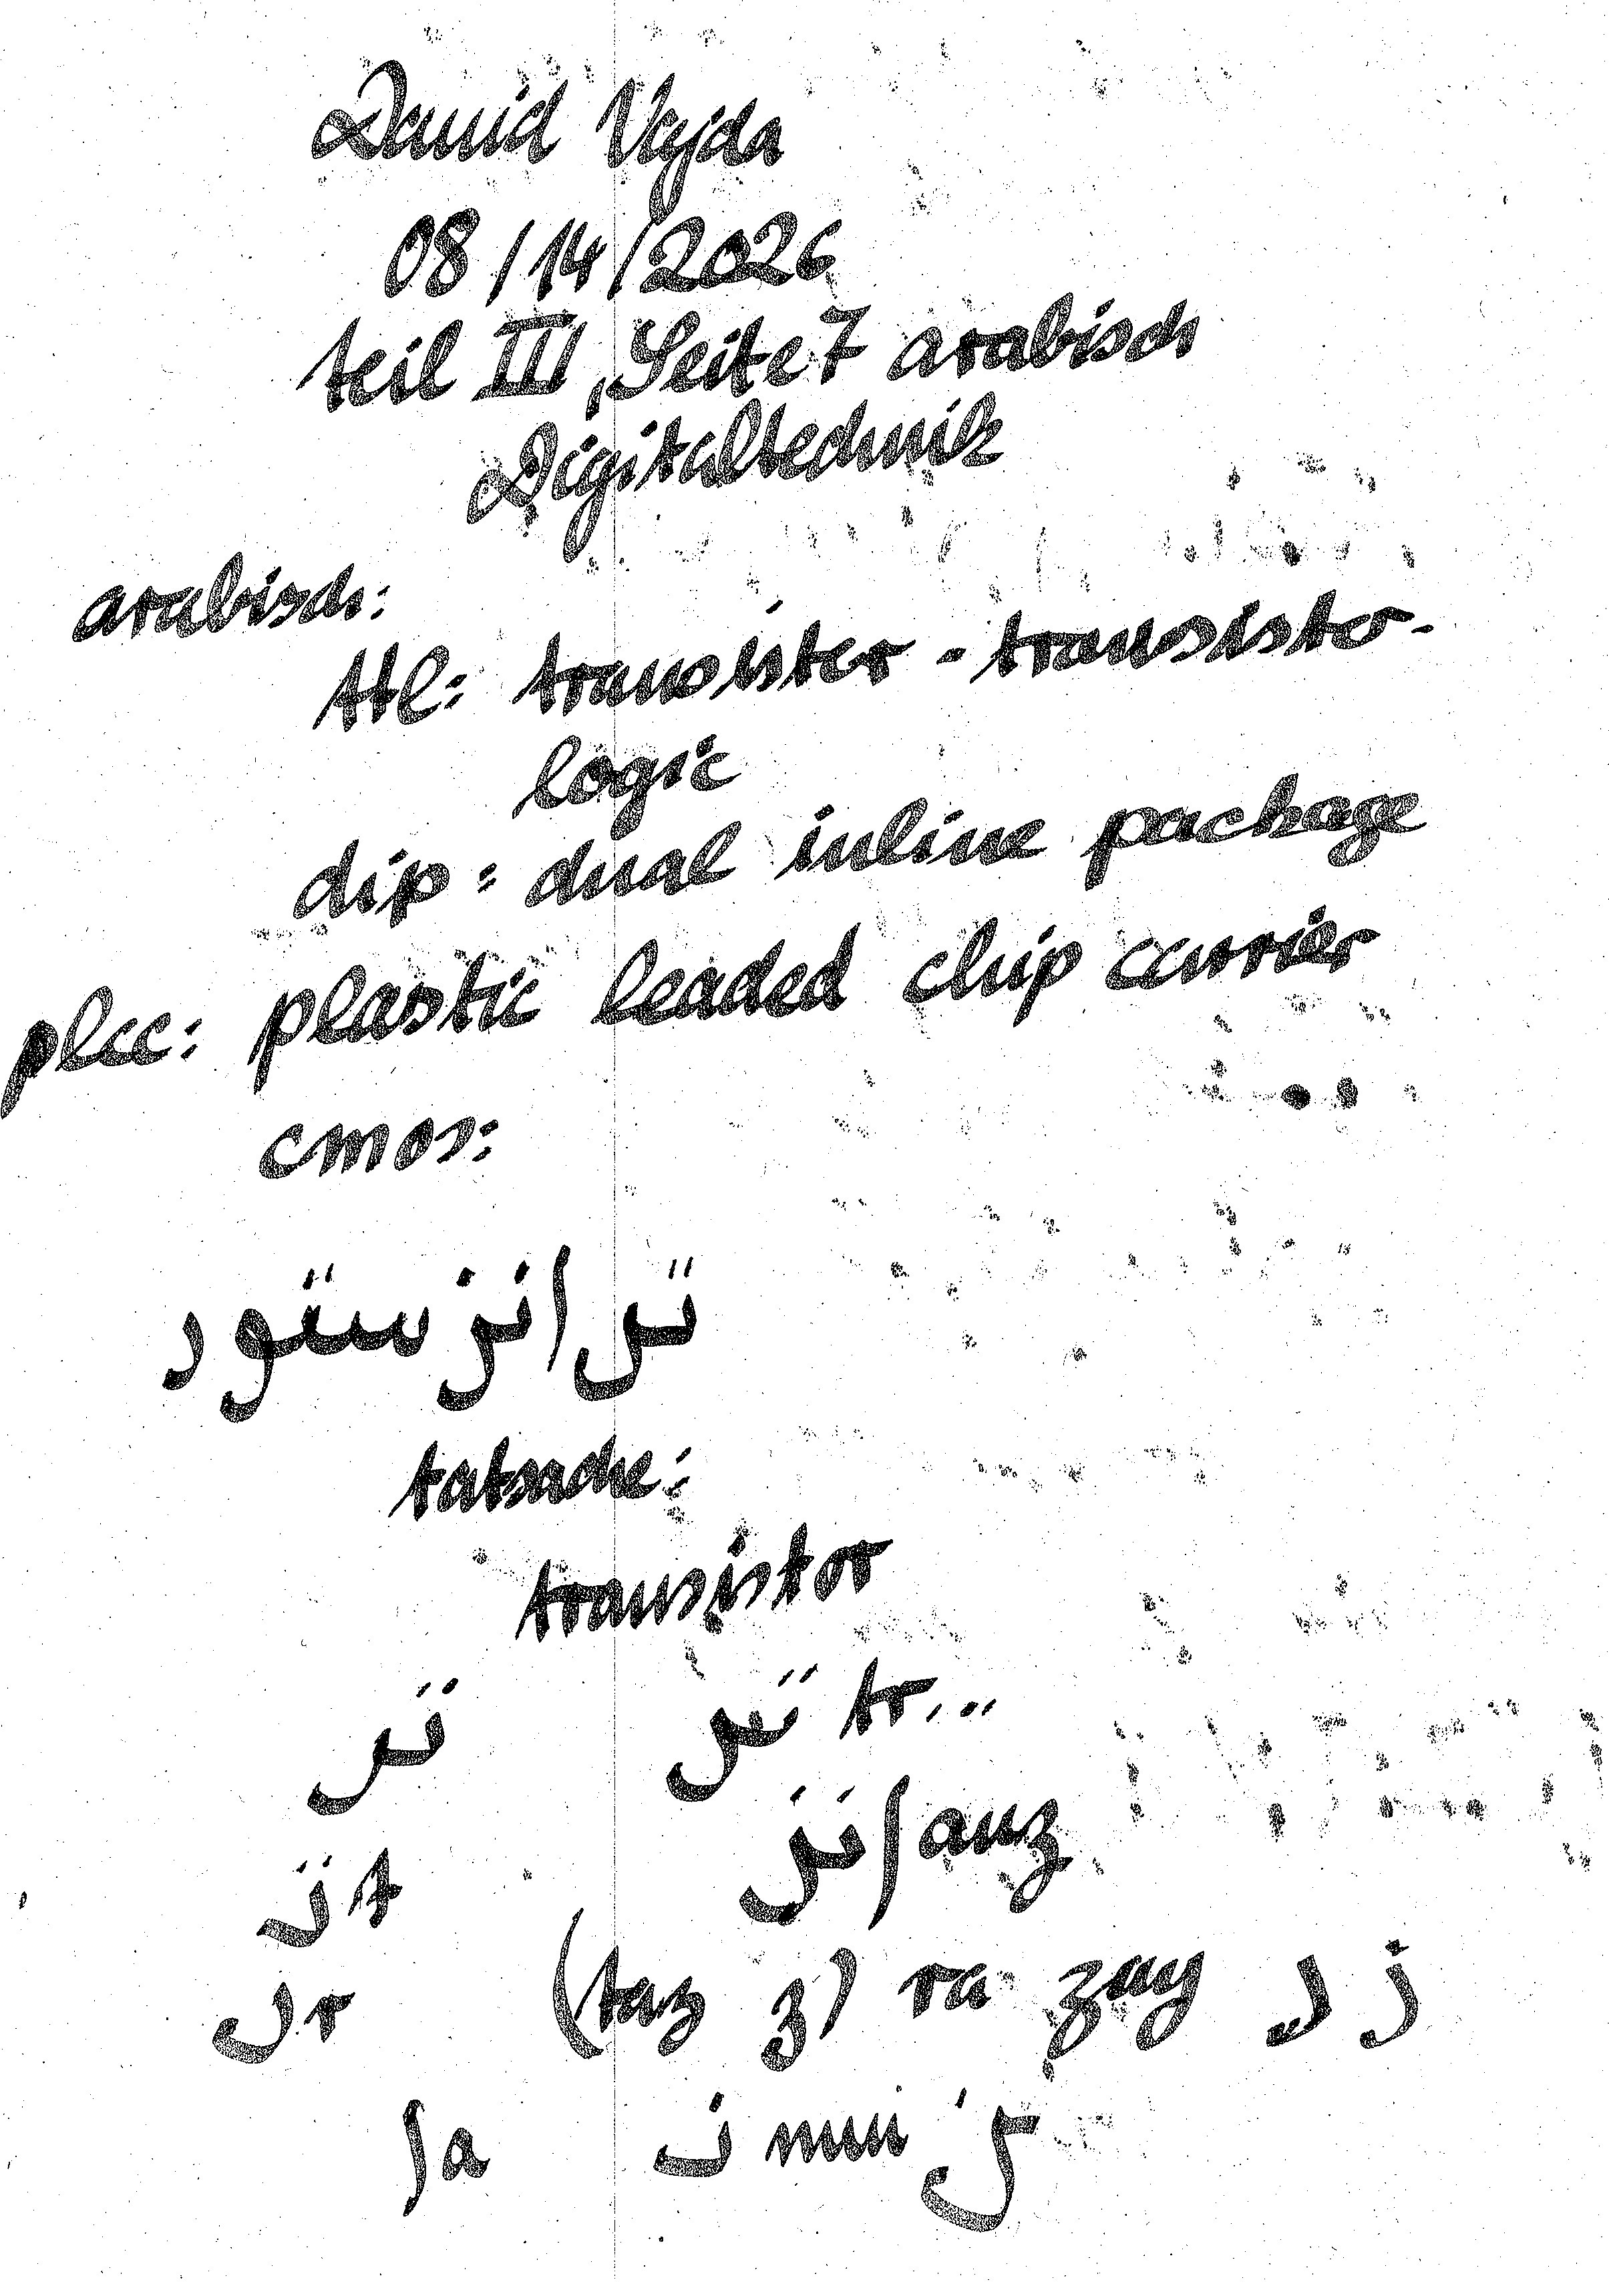 David Vajda
08/14/2026
teil III, Seite 7 arabisch
Digitaltechnik
arabisch:
ttl: transister - transisto-
logic
dip: dual inline package
plcc: plastic leaded chip carrier
cmos:
ترانزستور
tatsache:
transistor
تر تر tr...
انز anz
ت t
(taz z) ra zay ر ز
ر r
ا a ن nun ن